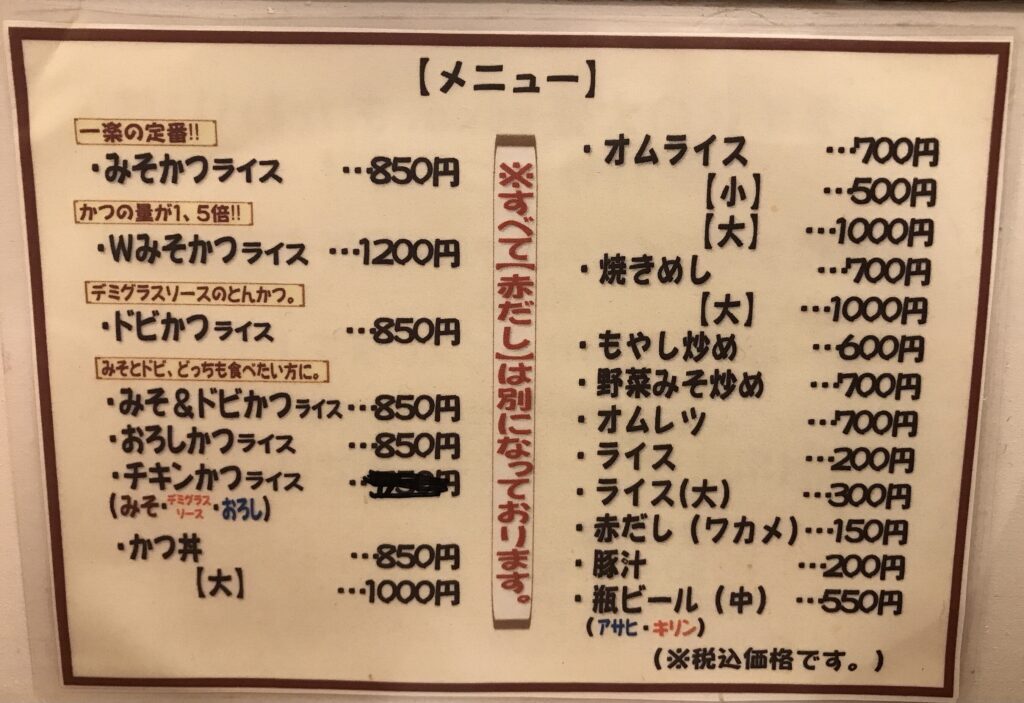 【メニュー】
一楽の定番!!
・みそかつライス …850円
かつの量が1、5倍!!
・Wみそかつライス …1200円
デミグラスソースのとんかつ。
・ドビかつライス …850円
みそとドビ、どっちも食べたい方に。
・みそ&ドビかつライス…850円
・おろしかつライス …850円
・チキンかつライス 円
(みそ・デミグラスソース・おろし)
・かつ丼 …850円
【大】 …1000円
※すべて【赤だし】は別になっております。
・オムライス …700円
【小】 …500円
【大】 …1000円
・焼きめし …700円
【大】 …1000円
・もやし炒め …600円
・野菜みそ炒め …700円
・オムレツ …700円
・ライス …200円
・ライス(大) …300円
・赤だし(ワカメ)…150円
・豚汁 …200円
・瓶ビール(中) …550円
(アサヒ・キリン)
(※税込価格です。)